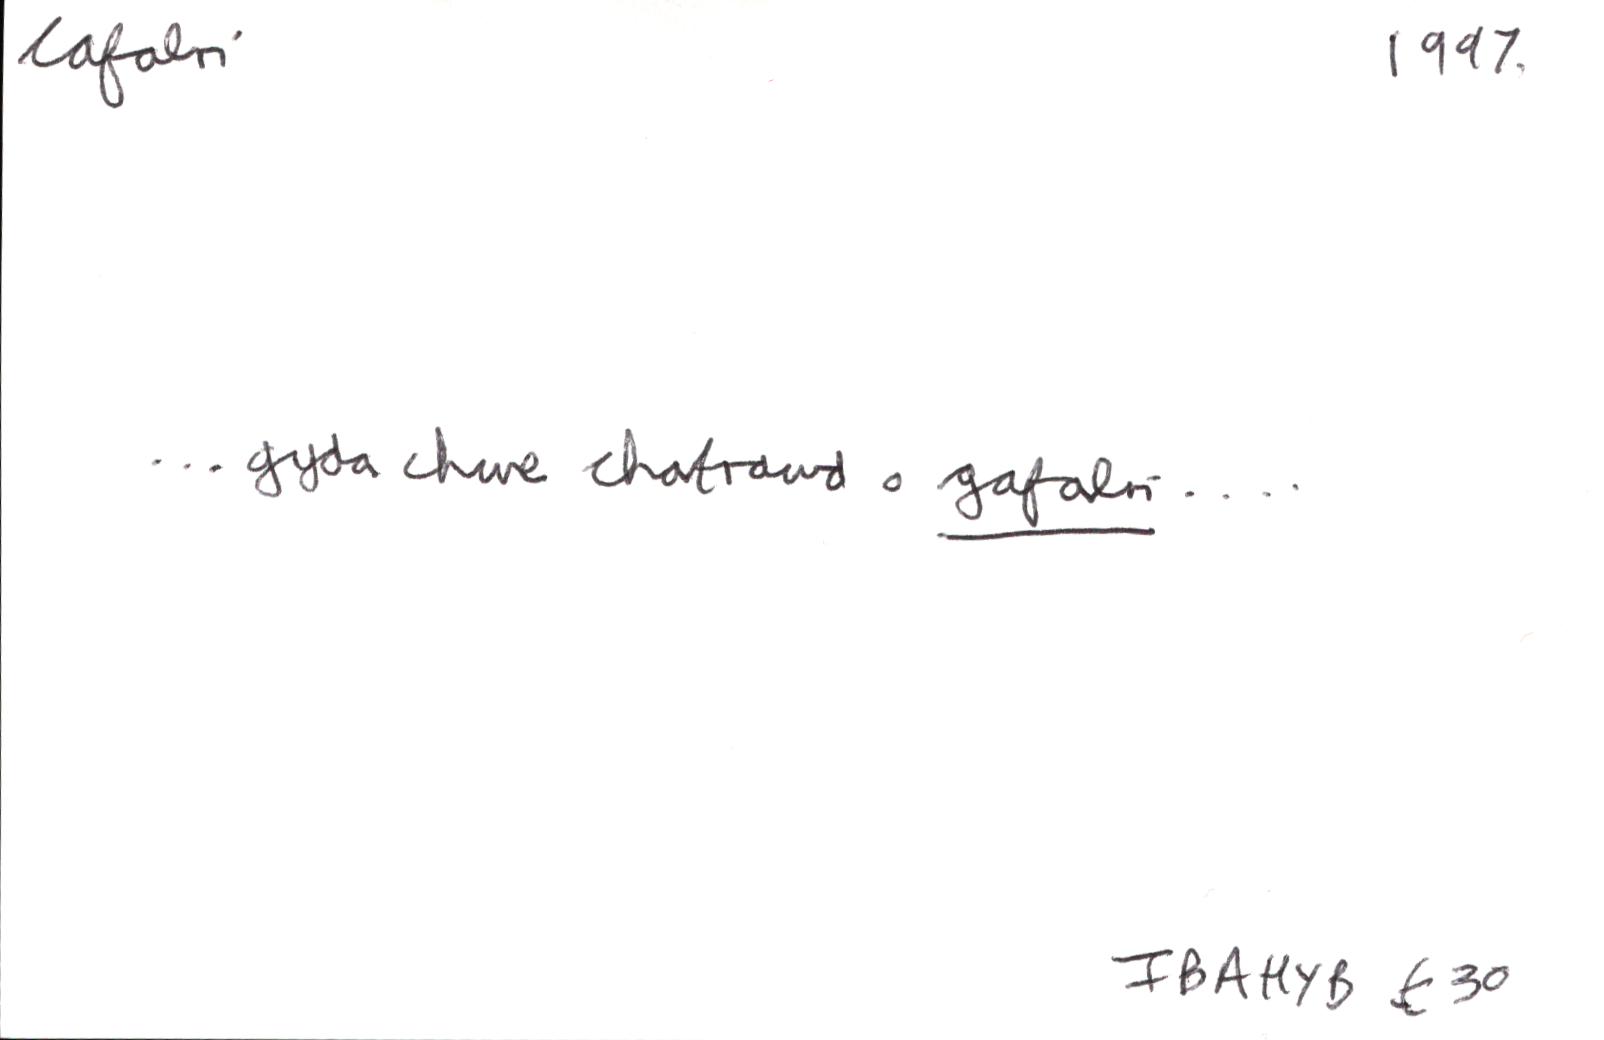 Cafalri 1997.
... gyda chwe chatrawd o gafalri ....
IBAHYB t 30